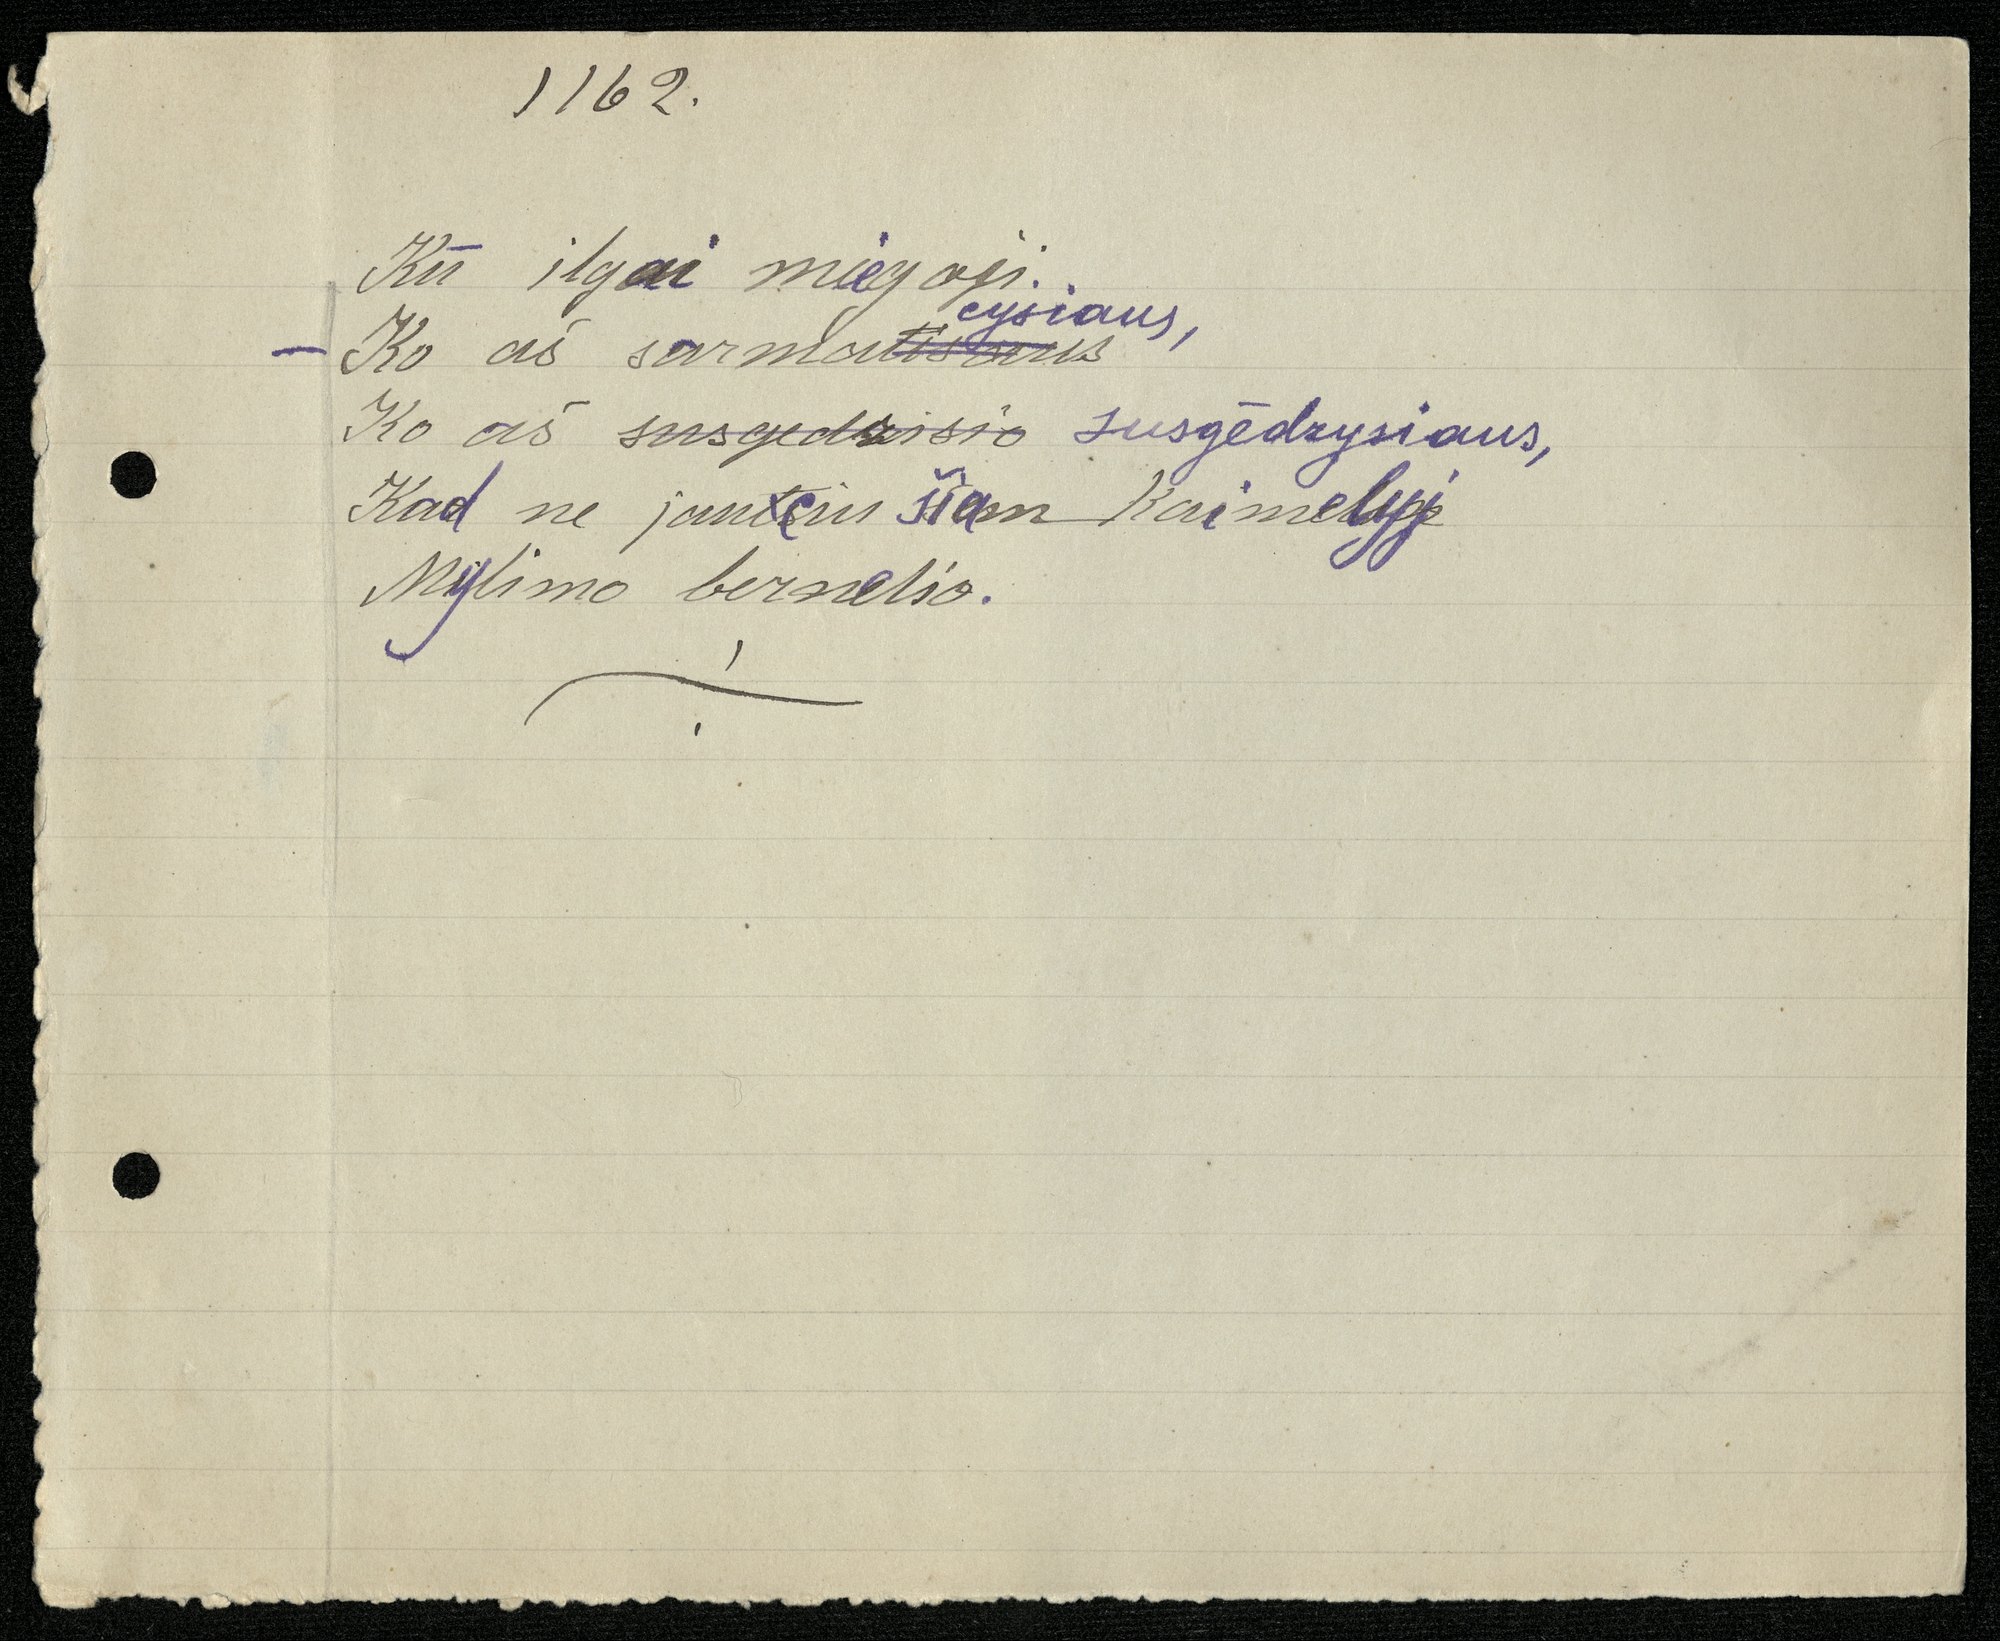 1162.
Kū ilgai miegoji.
cysiaus,
– Ko aš sarmatisaus
Ko aš susgedzisio susgēdzysiaus,
Kad ne jaučiu šiam kaimelyj
Mylimo bernelio.